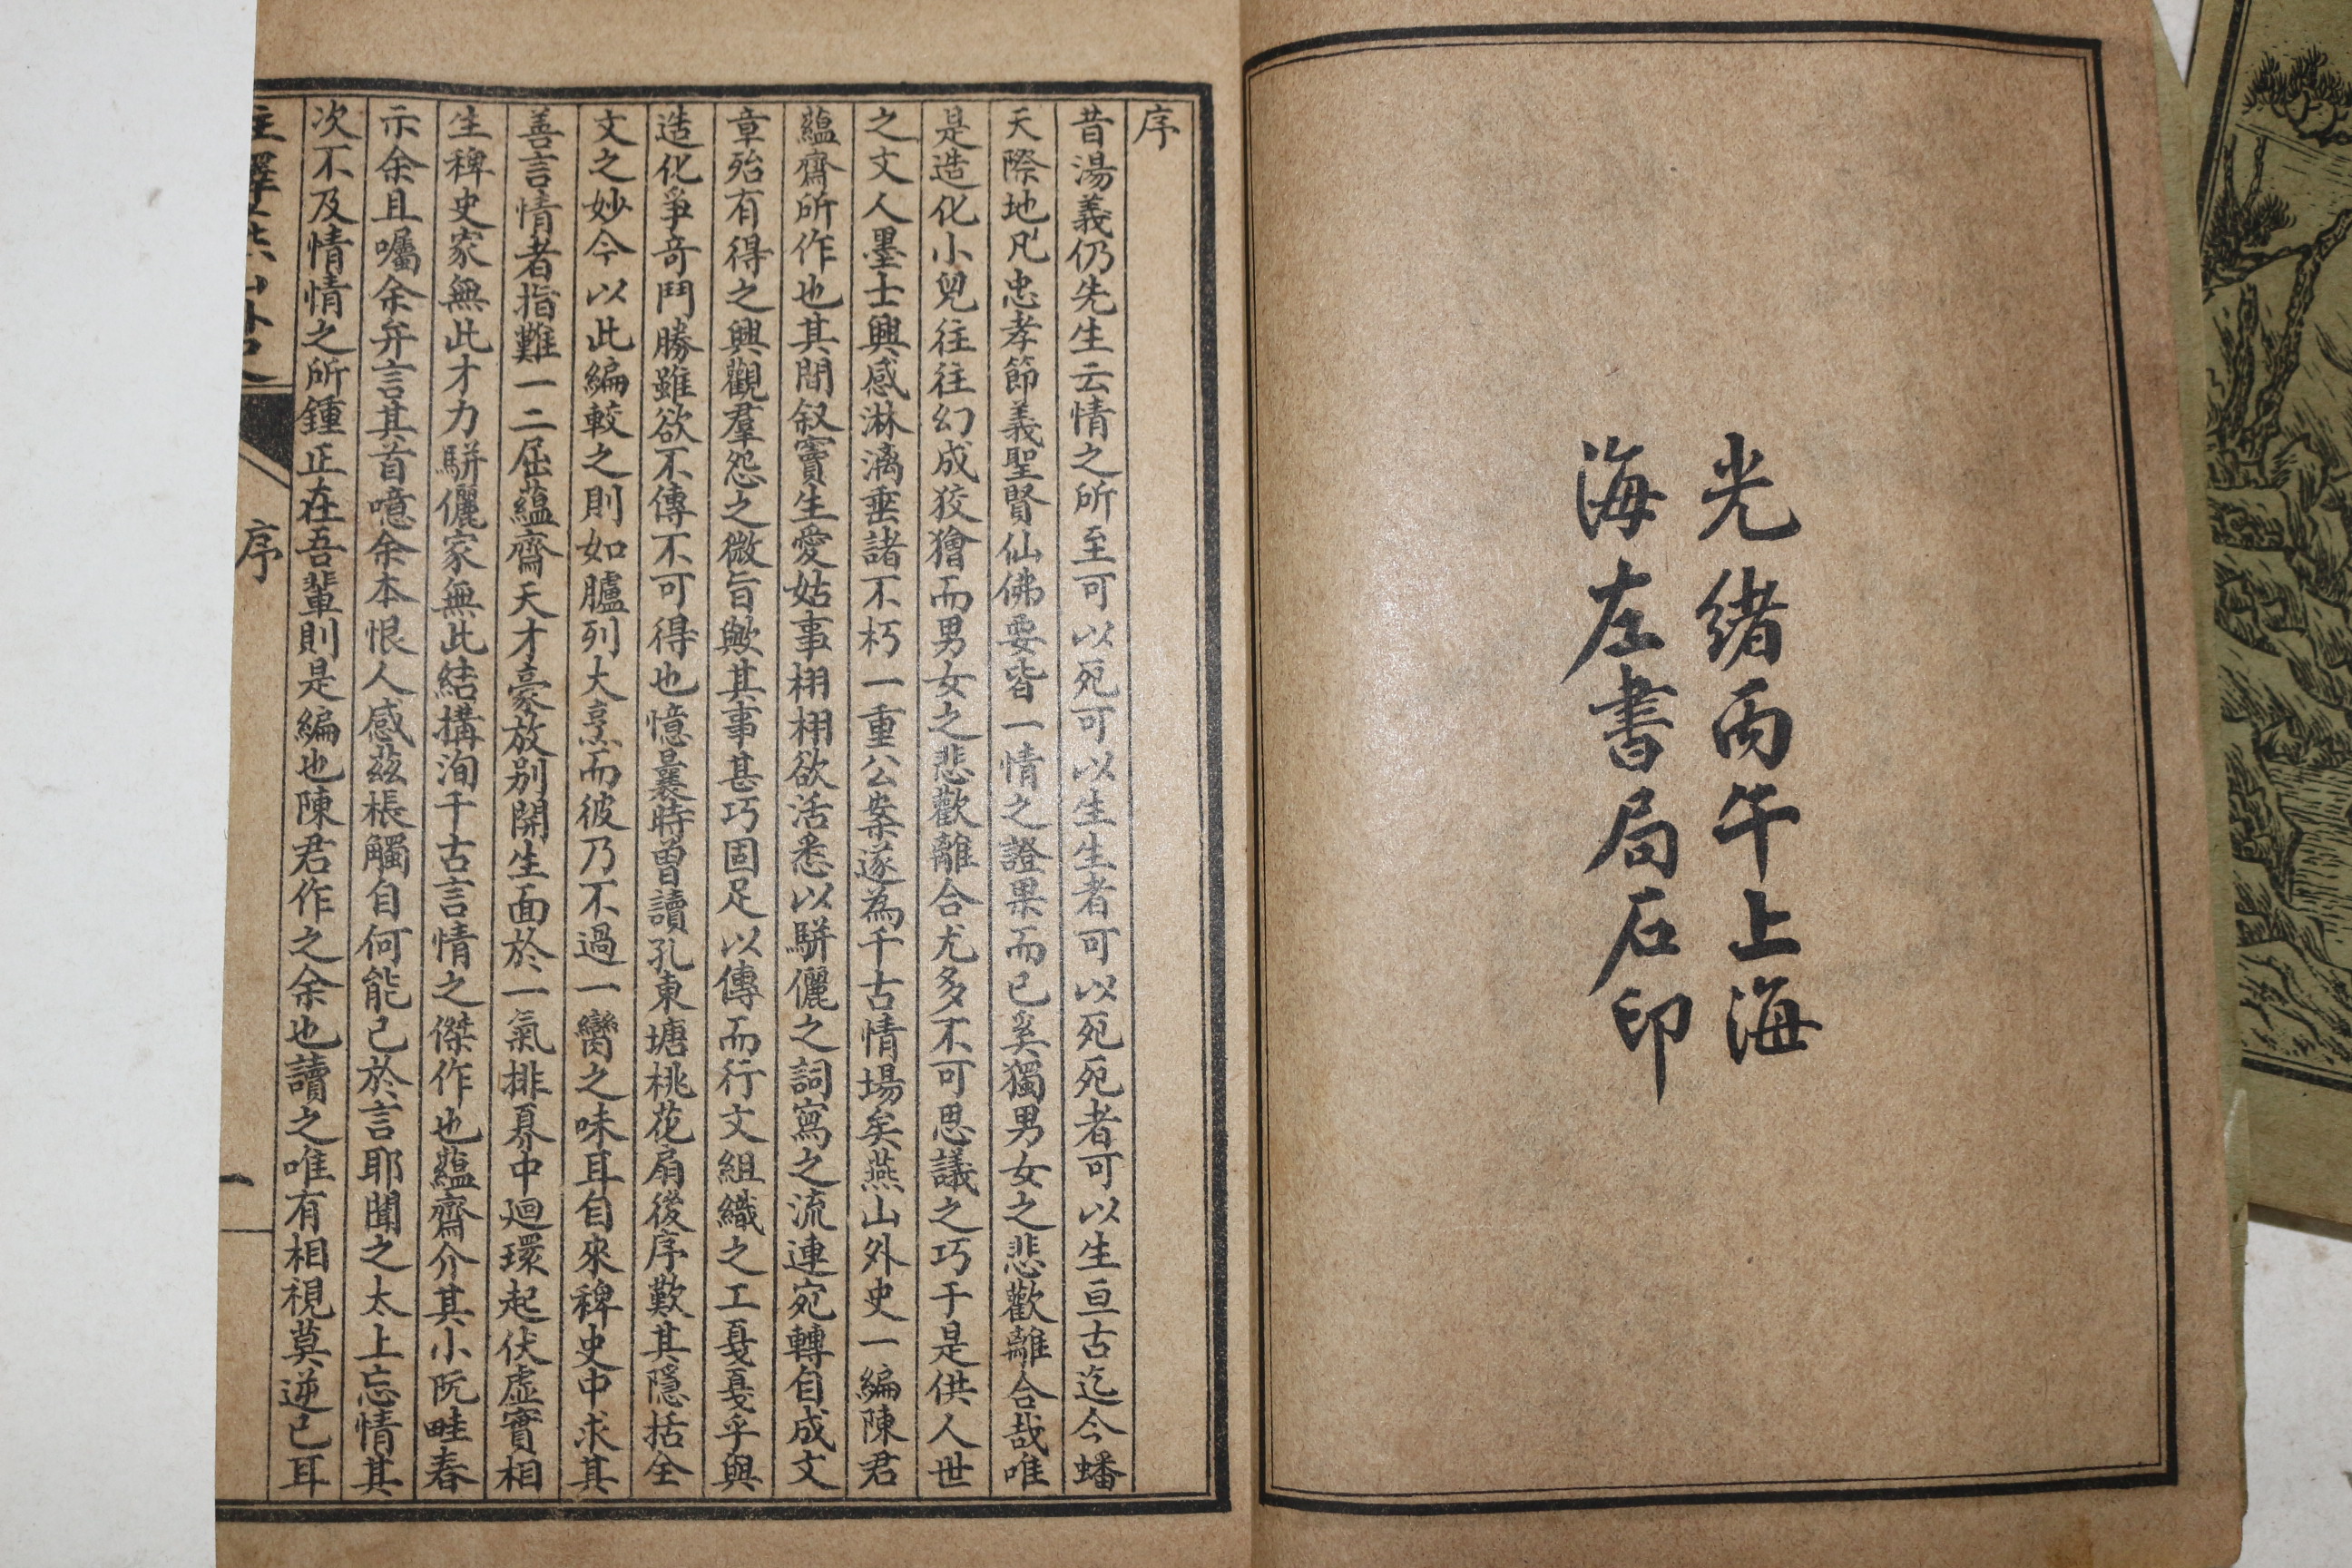 光緒丙午上海
海左書局石印
序
昔湯義仍先生云情之所至可以死可以生生者可以死死者可以生亘古迄今蟠
天際地凡忠孝節義聖賢仙佛要皆一情之證果而已奚獨男女之悲歡離合哉唯
是造化小兒往往幻成狡獪而男女之悲歡離合尤多不可思議之巧于是供人世
之文人墨士興感淋漓垂諸不朽一重公案遂為千古情場矣燕山外史一編陳君
蘊齋所作也其間叙竇生愛姑事栩栩欲活悉以駢儷之詞寫之流連宛轉自成文
章殆有得之興觀羣怨之微旨歟其事甚巧固足以傳而行文組織之工戛戛乎與
造化爭奇鬥勝雖欲不傳不可得也憶曩時曾讀孔東塘桃花扇後序歎其隱括全
文之妙今以此編較之則如臚列大烹而彼乃不過一臠之味耳自來稗史中求其
善言情者指難一二屈蘊齋天才豪放別開生面於一氣排奡中迴環起伏虛實相
生稗史家無此才力駢儷家無此結搆洵千古言情之傑作也蘊齋介其小阮畦春
示余且囑余弁言其首噫余本恨人感茲棖觸自何能已於言耶聞之太上忘情其
次不及情情之所鍾正在吾輩則是編也陳君作之余也讀之唯有相視莫逆已耳
序
一